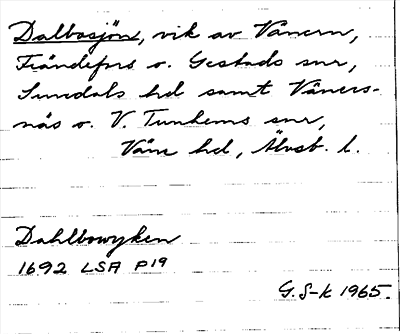 Dalbosjön, vik av Vänern,
Frändefors o. Gestads snr,
Sundals hd samt Väners-
näs o. V. Tunhems snr,
Väne hd, Älvsb. l.
Dahlbowyken
1692 LSA P19
G. S-k 1965.